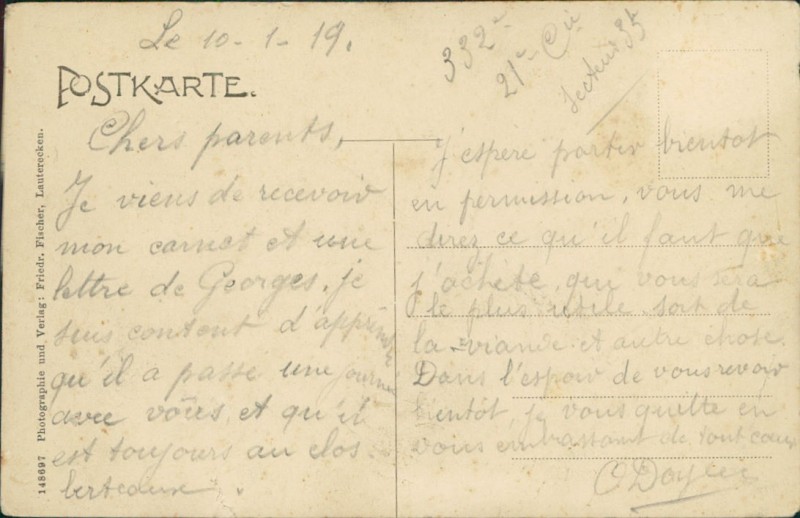 Le 10-1-19.
332e
21e Cie
Secteur 85
POSTKARTE.
Chers parents,
Je viens de recevoir
mon carnet et une
lettre de Georges. je
suis content d'apprendre
qu'il a passe une journee
avec vous et qu'il
est toujours au clos
berteaux.
J'espère partir bientot
en permission, vous me
direz ce qu'il faut que
j'achète, qui vous sera
le plus utile, soit de
la viande et autre chose.
Dans l'espoir de vous revoir
bientot, je vous quitte en
vous embrassant de tout coeur
148697 Photographie und Verlag: Friedr. Fischer, Lauterecken.